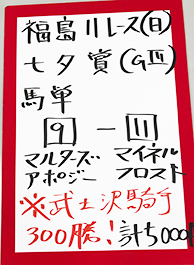 福島11レース(日)
七夕賞(GⅢ)
馬単
9-11
マルターズ マイネル
アポジー フロスト
※武士沢騎手
300勝!計5000